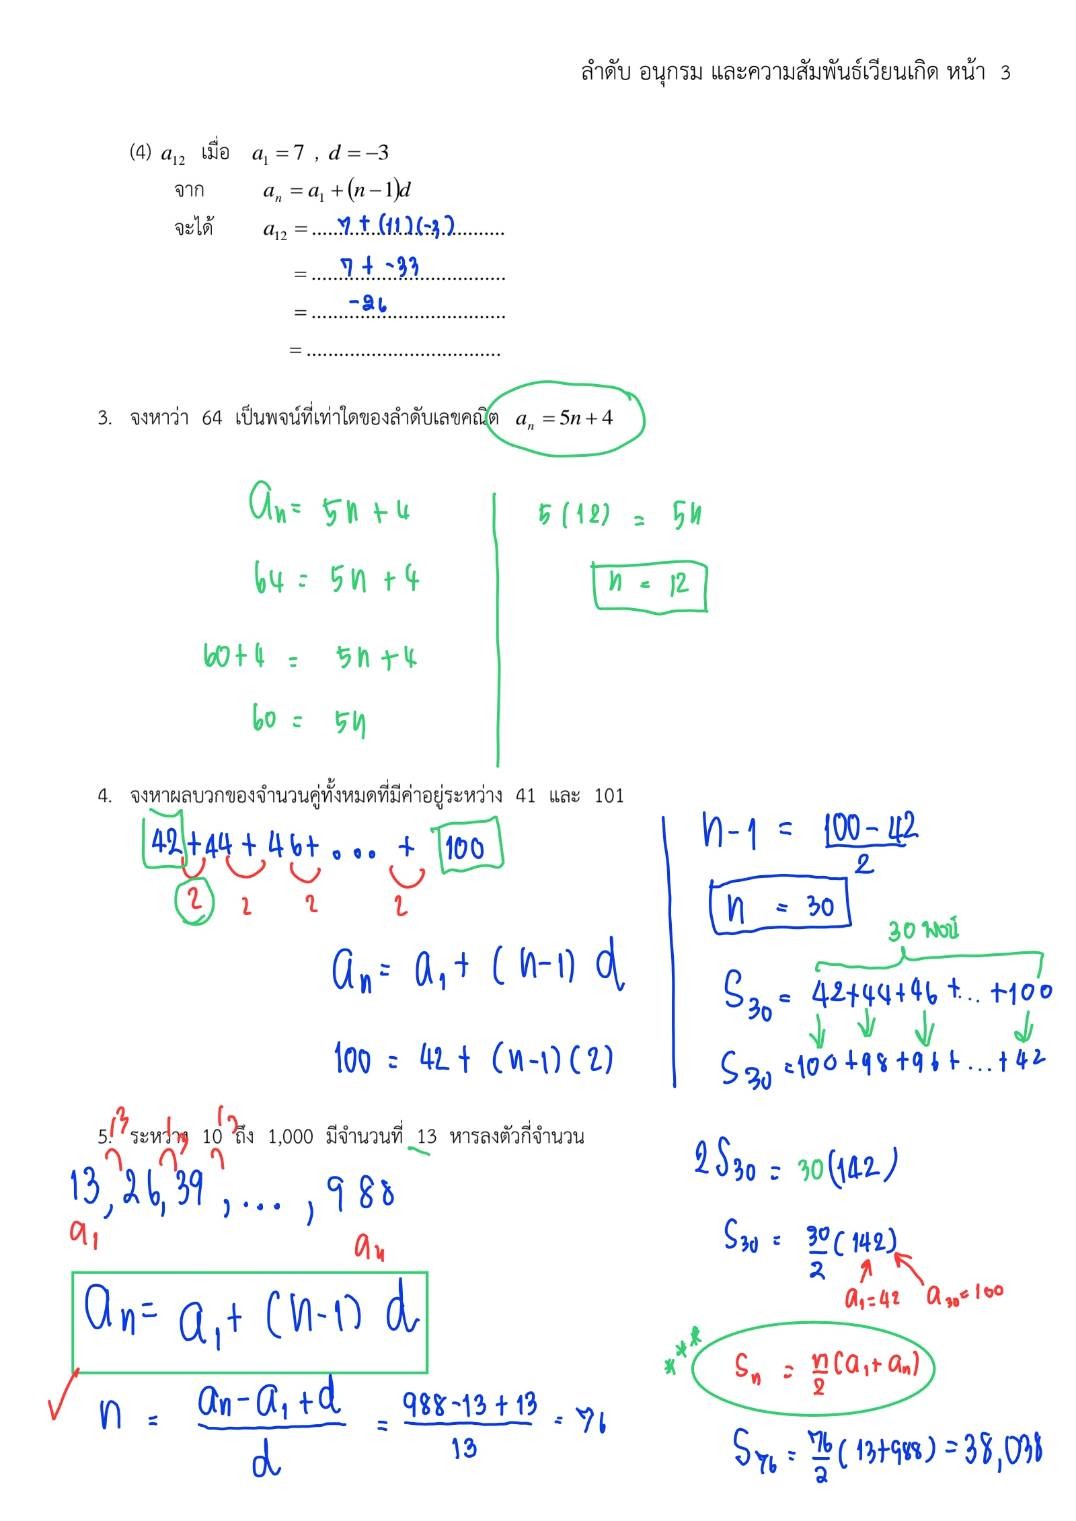 ลำดับ อนุกรม และความสัมพันธ์เวียนเกิด หน้า 3
(4) a₁₂ เมื่อ a₁ = 7 , d = −3
จาก aₙ = a₁ + (n − 1)d
จะได้ a₁₂ = 7 + (11)(-3)
= 7 + -33
= -26
= ....................................
3. จงหาว่า 64 เป็นพจน์ที่เท่าใดของลำดับเลขคณิต aₙ = 5n + 4
aₙ = 5n + 4
64 = 5n + 4
60+4 = 5n + 4
60 = 5n
5(12) = 5n
n = 12
4. จงหาผลบวกของจำนวนคู่ทั้งหมดที่มีค่าอยู่ระหว่าง 41 และ 101
42 + 44 + 46 + ... + 100
2 2 2 2
aₙ = a₁ + (n-1) d
100 = 42 + (n-1)(2)
n-1 = (100-42)/2
n = 30
30 พจน์
S₃₀ = 42+44+46+...+100
S₃₀ = 100+98+96+...+42
2S₃₀ = 30(142)
S₃₀ = 30/2 (142)
a₁=42 a₃₀=100
*** Sₙ = n/2 (a₁+aₙ)
S₇₆ = 76/2 (13+988) = 38,038
5. ระหว่าง 10 ถึง 1,000 มีจำนวนที่ 13 หารลงตัวกี่จำนวน
13 13 13
13, 26, 39, ..., 988
a₁ aₙ
aₙ = a₁ + (n-1) d
n = (aₙ-a₁+d)/d = (988-13+13)/13 = 76